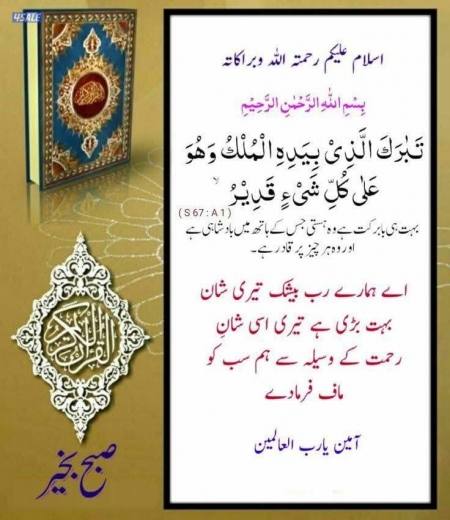 4SALE
اسلام علیکم رحمتہ اللہ وبراکاتہ
بِسْمِ اللّٰهِ الرَّحْمٰنِ الرَّحِيْمِ
تَبٰرَكَ الَّذِىْ بِيَدِهِ الْمُلْكُ وَهُوَ
عَلٰى كُلِّ شَىْءٍ قَدِيْرُ ۙ
(S 67 : A 1)
بہت ہی بابرکت ہے وہ ہستی جس کے ہاتھ میں بادشاہی ہے
اور وہ ہر چیز پر قادر ہے۔
اے ہمارے رب بیشک تیری شان
بہت بڑی ہے تیری اسی شانِ
رحمت کے وسیلہ سے ہم سب کو
ماف فرمادے
آمین یارب العالمین
القرآن الكريم
صبح بخیر